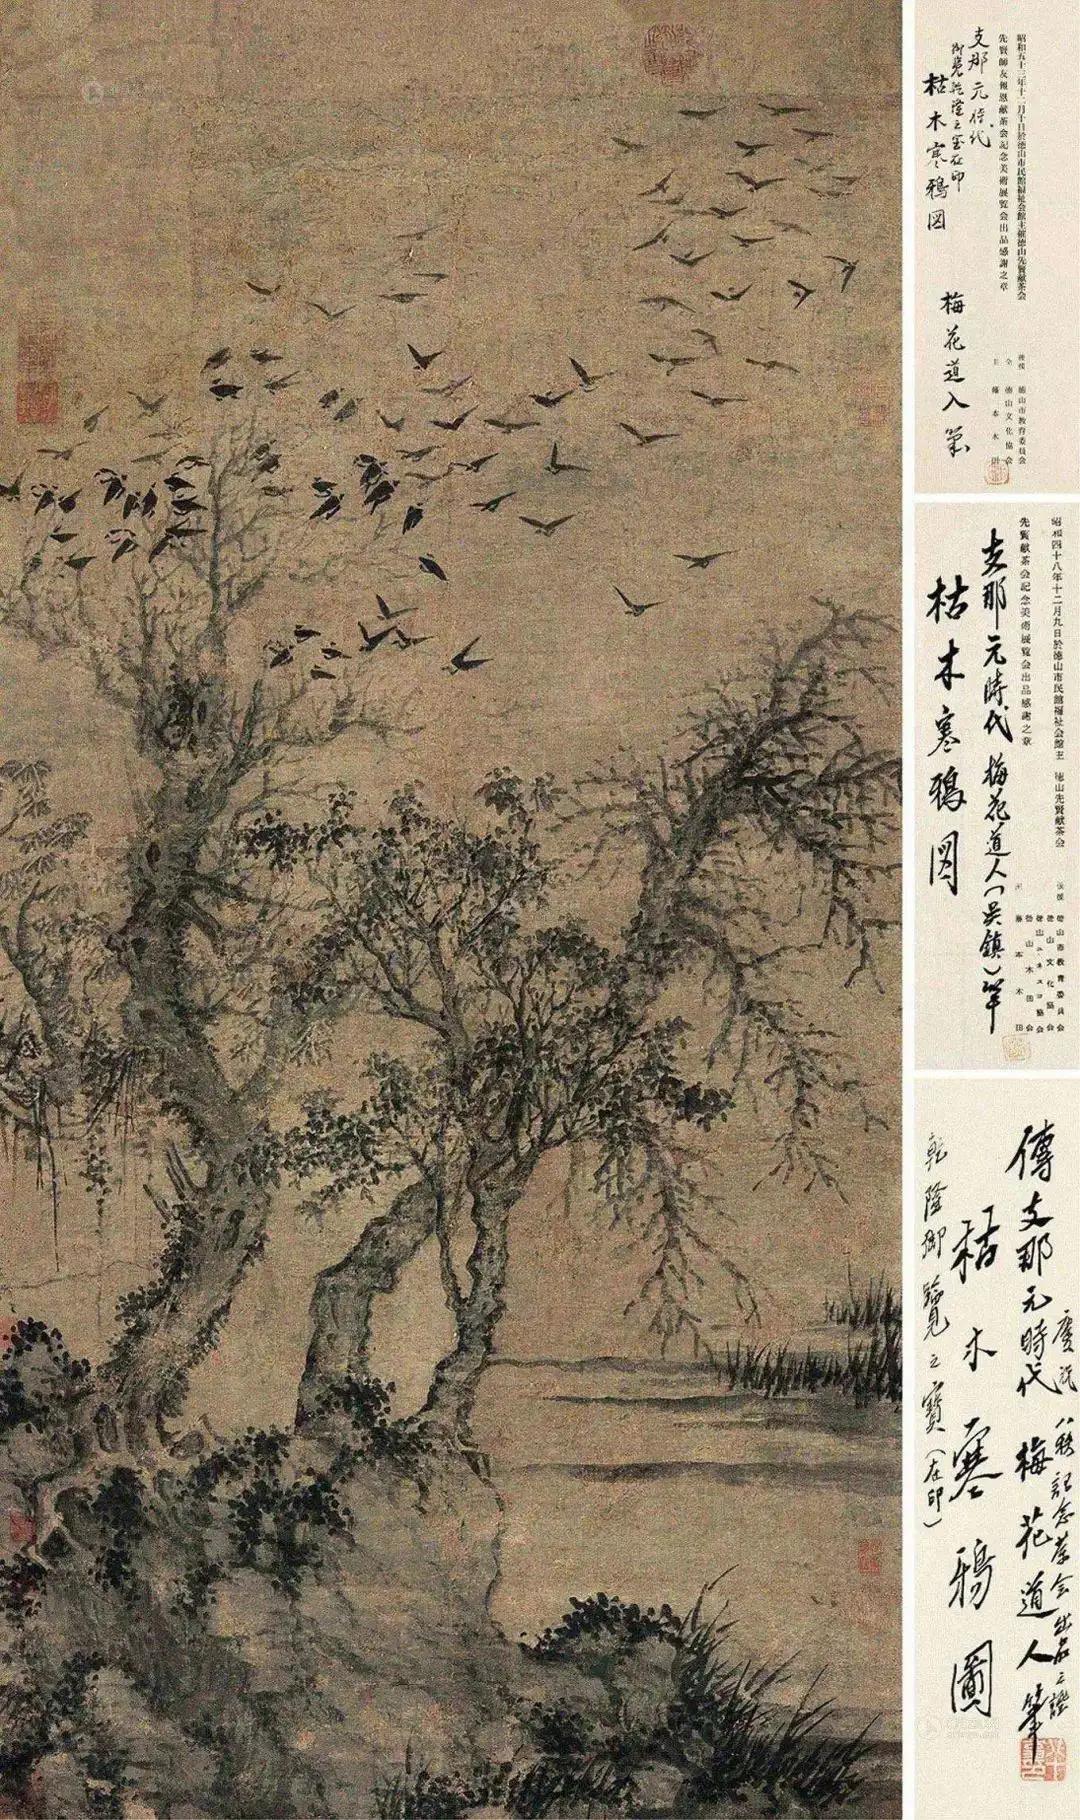 昭和五十三年十二月十日於徳山市民館福祉会館主催徳山先賢献茶会
先賢師友報恩献茶会記念美術展覧会出品感謝之章
支那元時代
御覧乾隆之宝在印
枯木寒鴉図
梅花道人筆
後援 徳山市教育委員会
仝 徳山文化協会
藤本木田
昭和四十八年十二月九日於徳山市民館福祉会館主 徳山先賢献茶会
先賢献茶会記念美術展覧会出品感謝之章
支那元時代 梅花道人(吴鎮)筆
枯木寒鴉図
徳山市教育委員会
徳山文化協会
徳山ユネスコ協会
徳山木田会
藤本木田
記念茶会出品之證
傳支那元時代 梅花道人筆
枯木寒鴉圖
乾隆御覧之寶(在印)